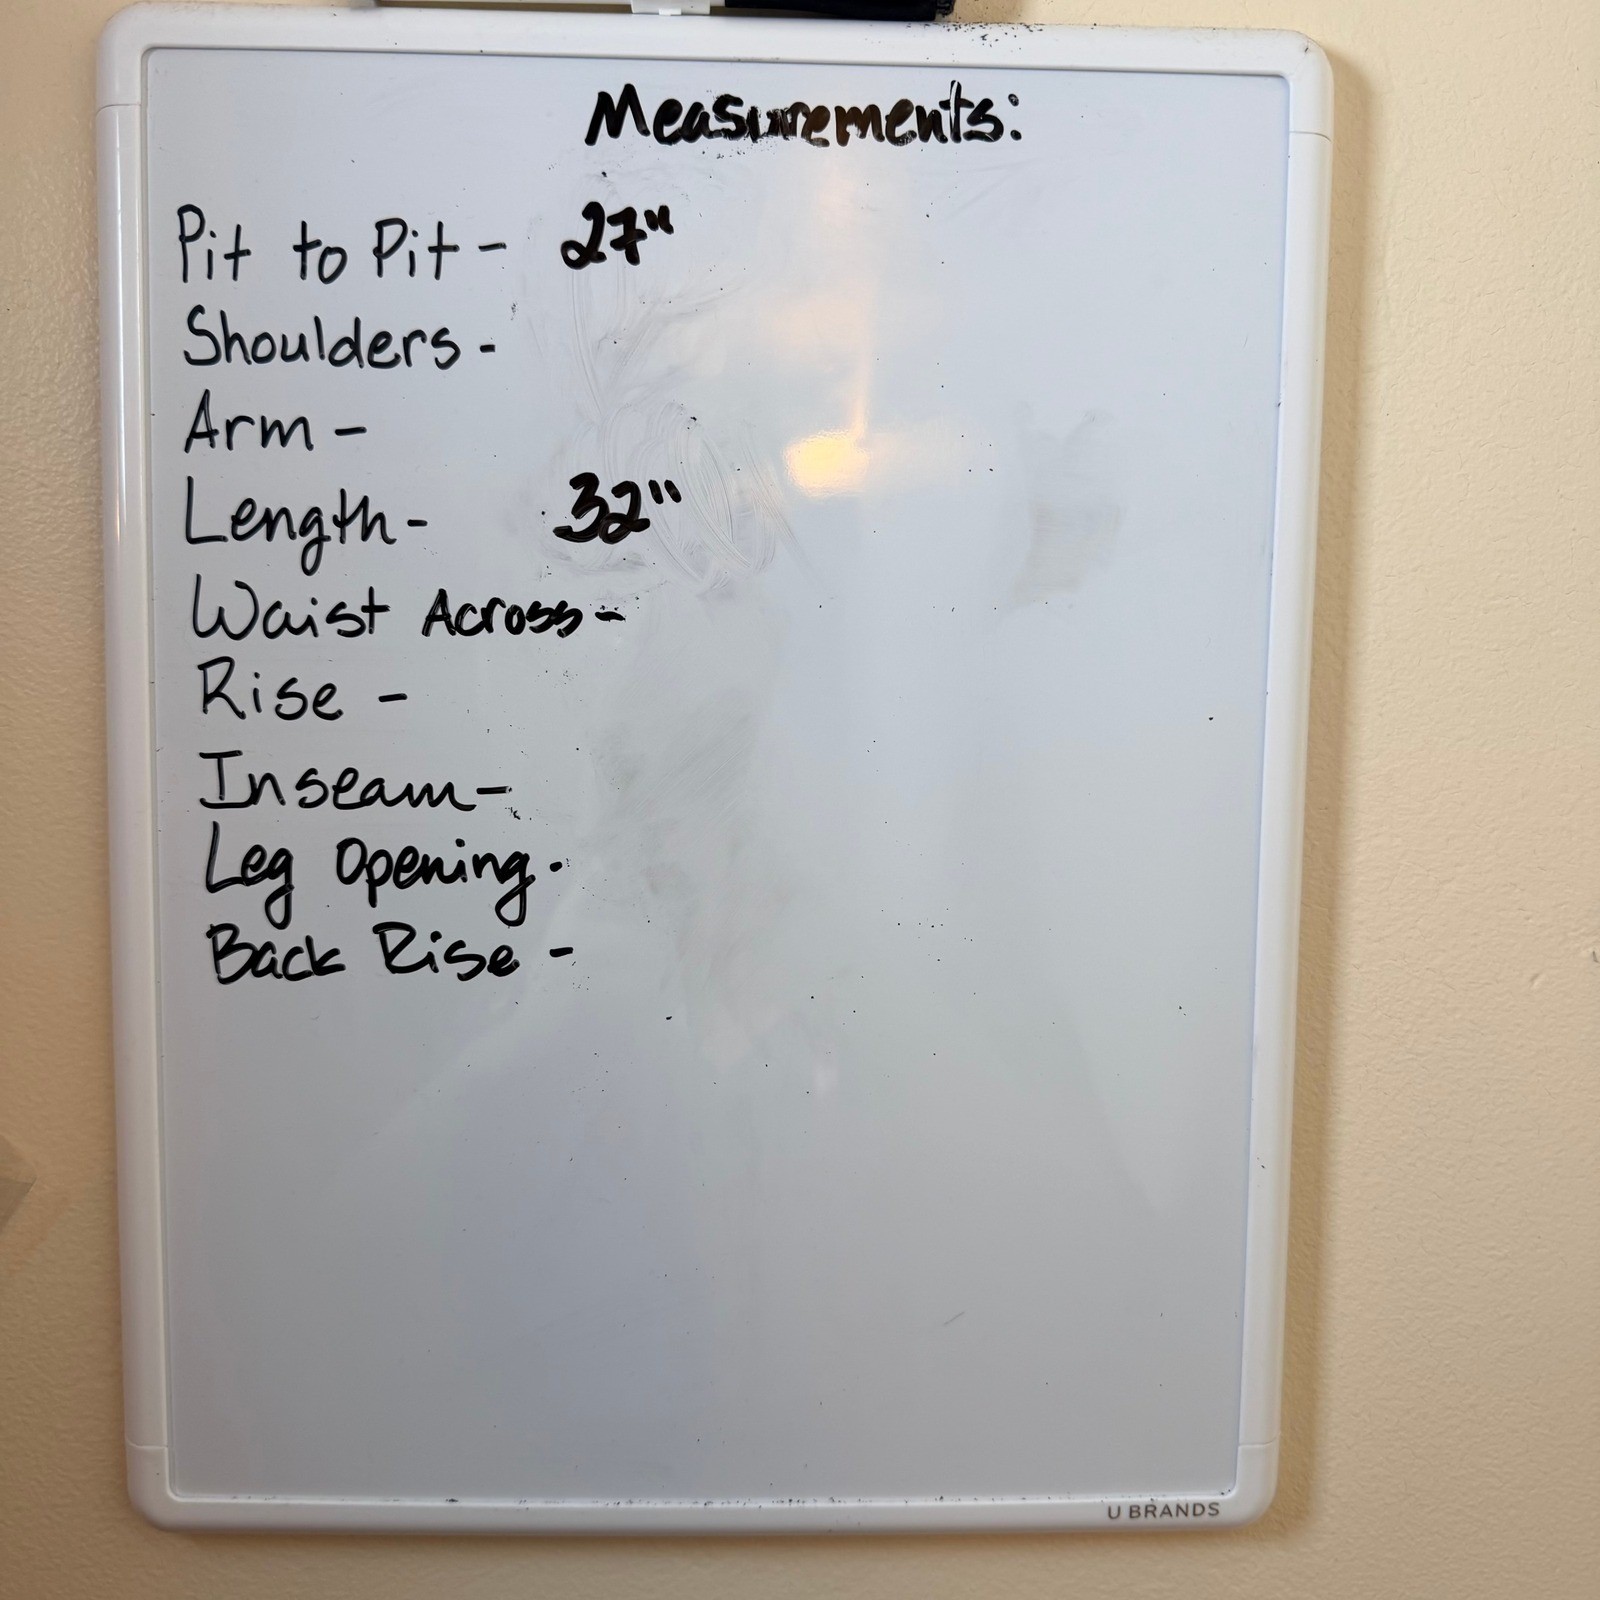 Measurements:
Pit to Pit - 27"
Shoulders -
Arm -
Length - 32"
Waist Across -
Rise -
Inseam -
Leg Opening -
Back Rise -
U BRANDS